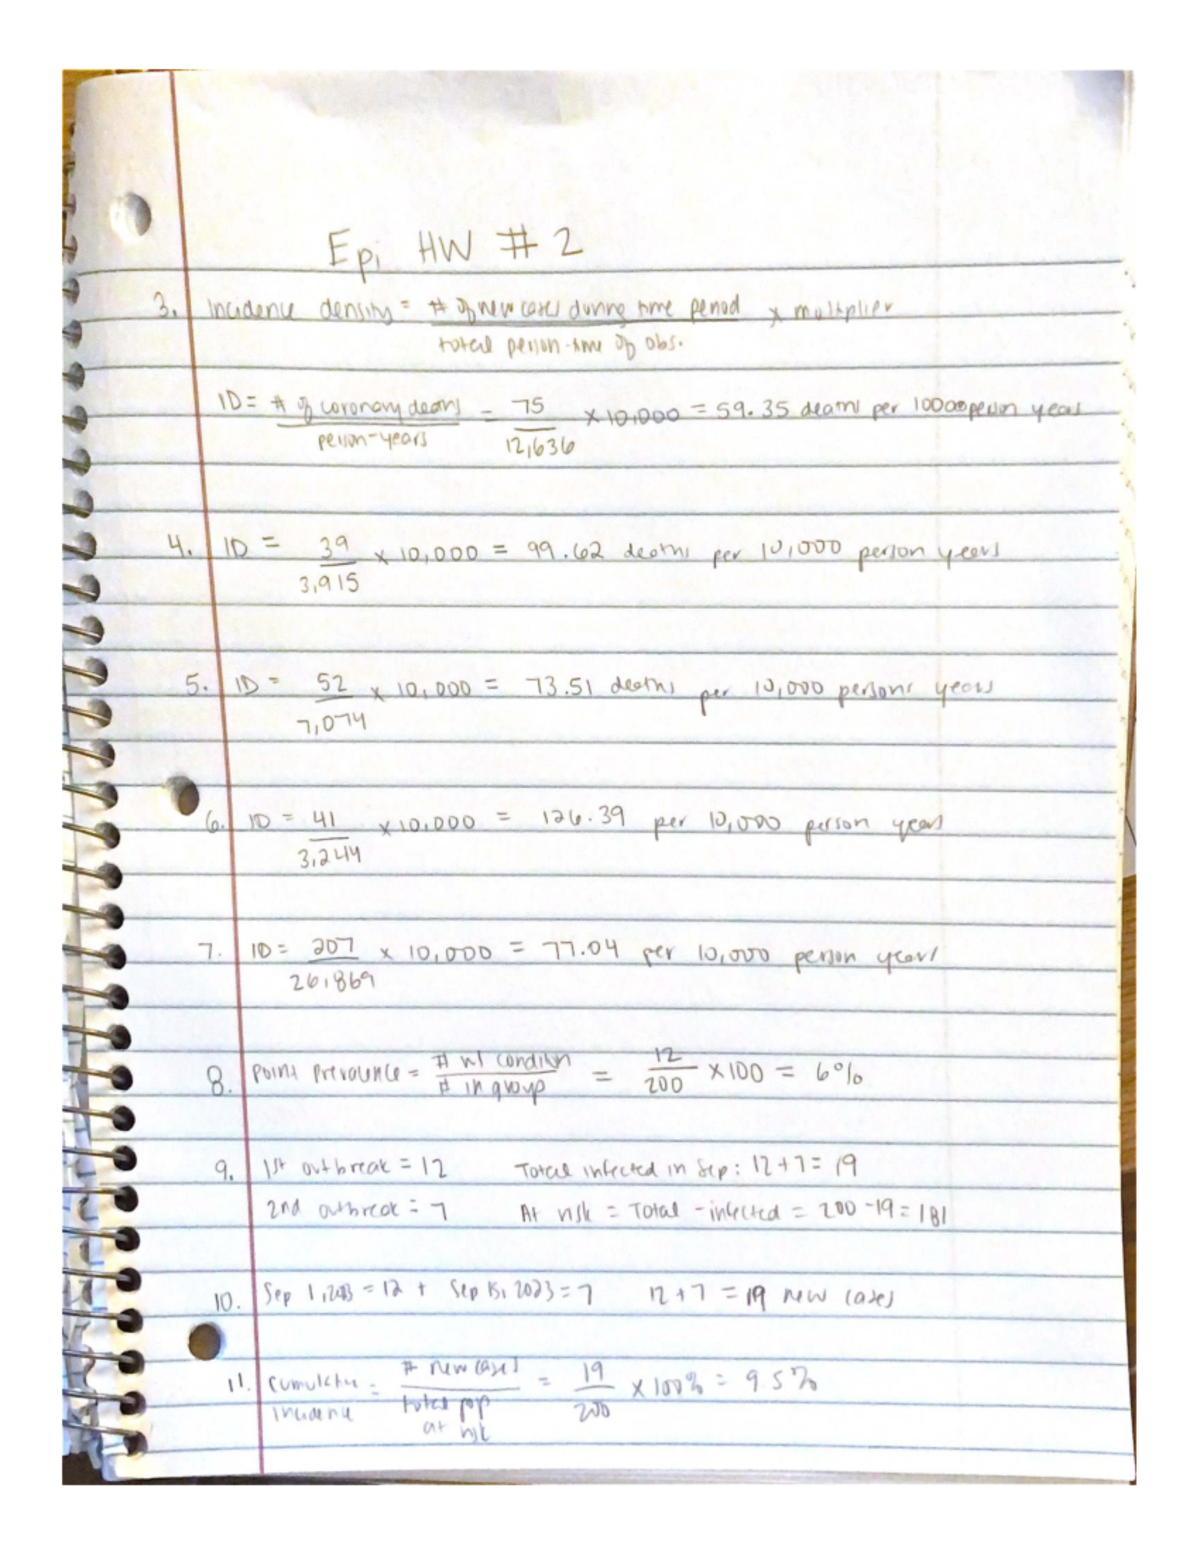 Epi HW # 2
3. Incidence density = # of new cases during time period / total person-time of obs. x multiplier
ID = # of coronary deaths / person-years = 75 / 12,636 x 10,000 = 59.35 deaths per 10000 person years
4. ID = 39 / 3,915 x 10,000 = 99.62 deaths per 10,000 person years
5. ID = 52 / 7,074 x 10,000 = 73.51 deaths per 10,000 persons years
6. ID = 41 / 3,244 x 10,000 = 126.39 per 10,000 person years
7. ID = 207 / 26,869 x 10,000 = 77.04 per 10,000 person years
8. Point Prevalence = # w/ condition / # in group = 12 / 200 x 100 = 6%
9. 1st outbreak = 12 Total infected in Sep: 12 + 7 = 19
2nd outbreak = 7 At risk = Total - infected = 200 - 19 = 181
10. Sep 1, 2023 = 12 + Sep 15, 2023 = 7 12 + 7 = 19 new cases
11. Cumulative incidence = # new cases / total pop at risk = 19 / 200 x 100% = 9.5%